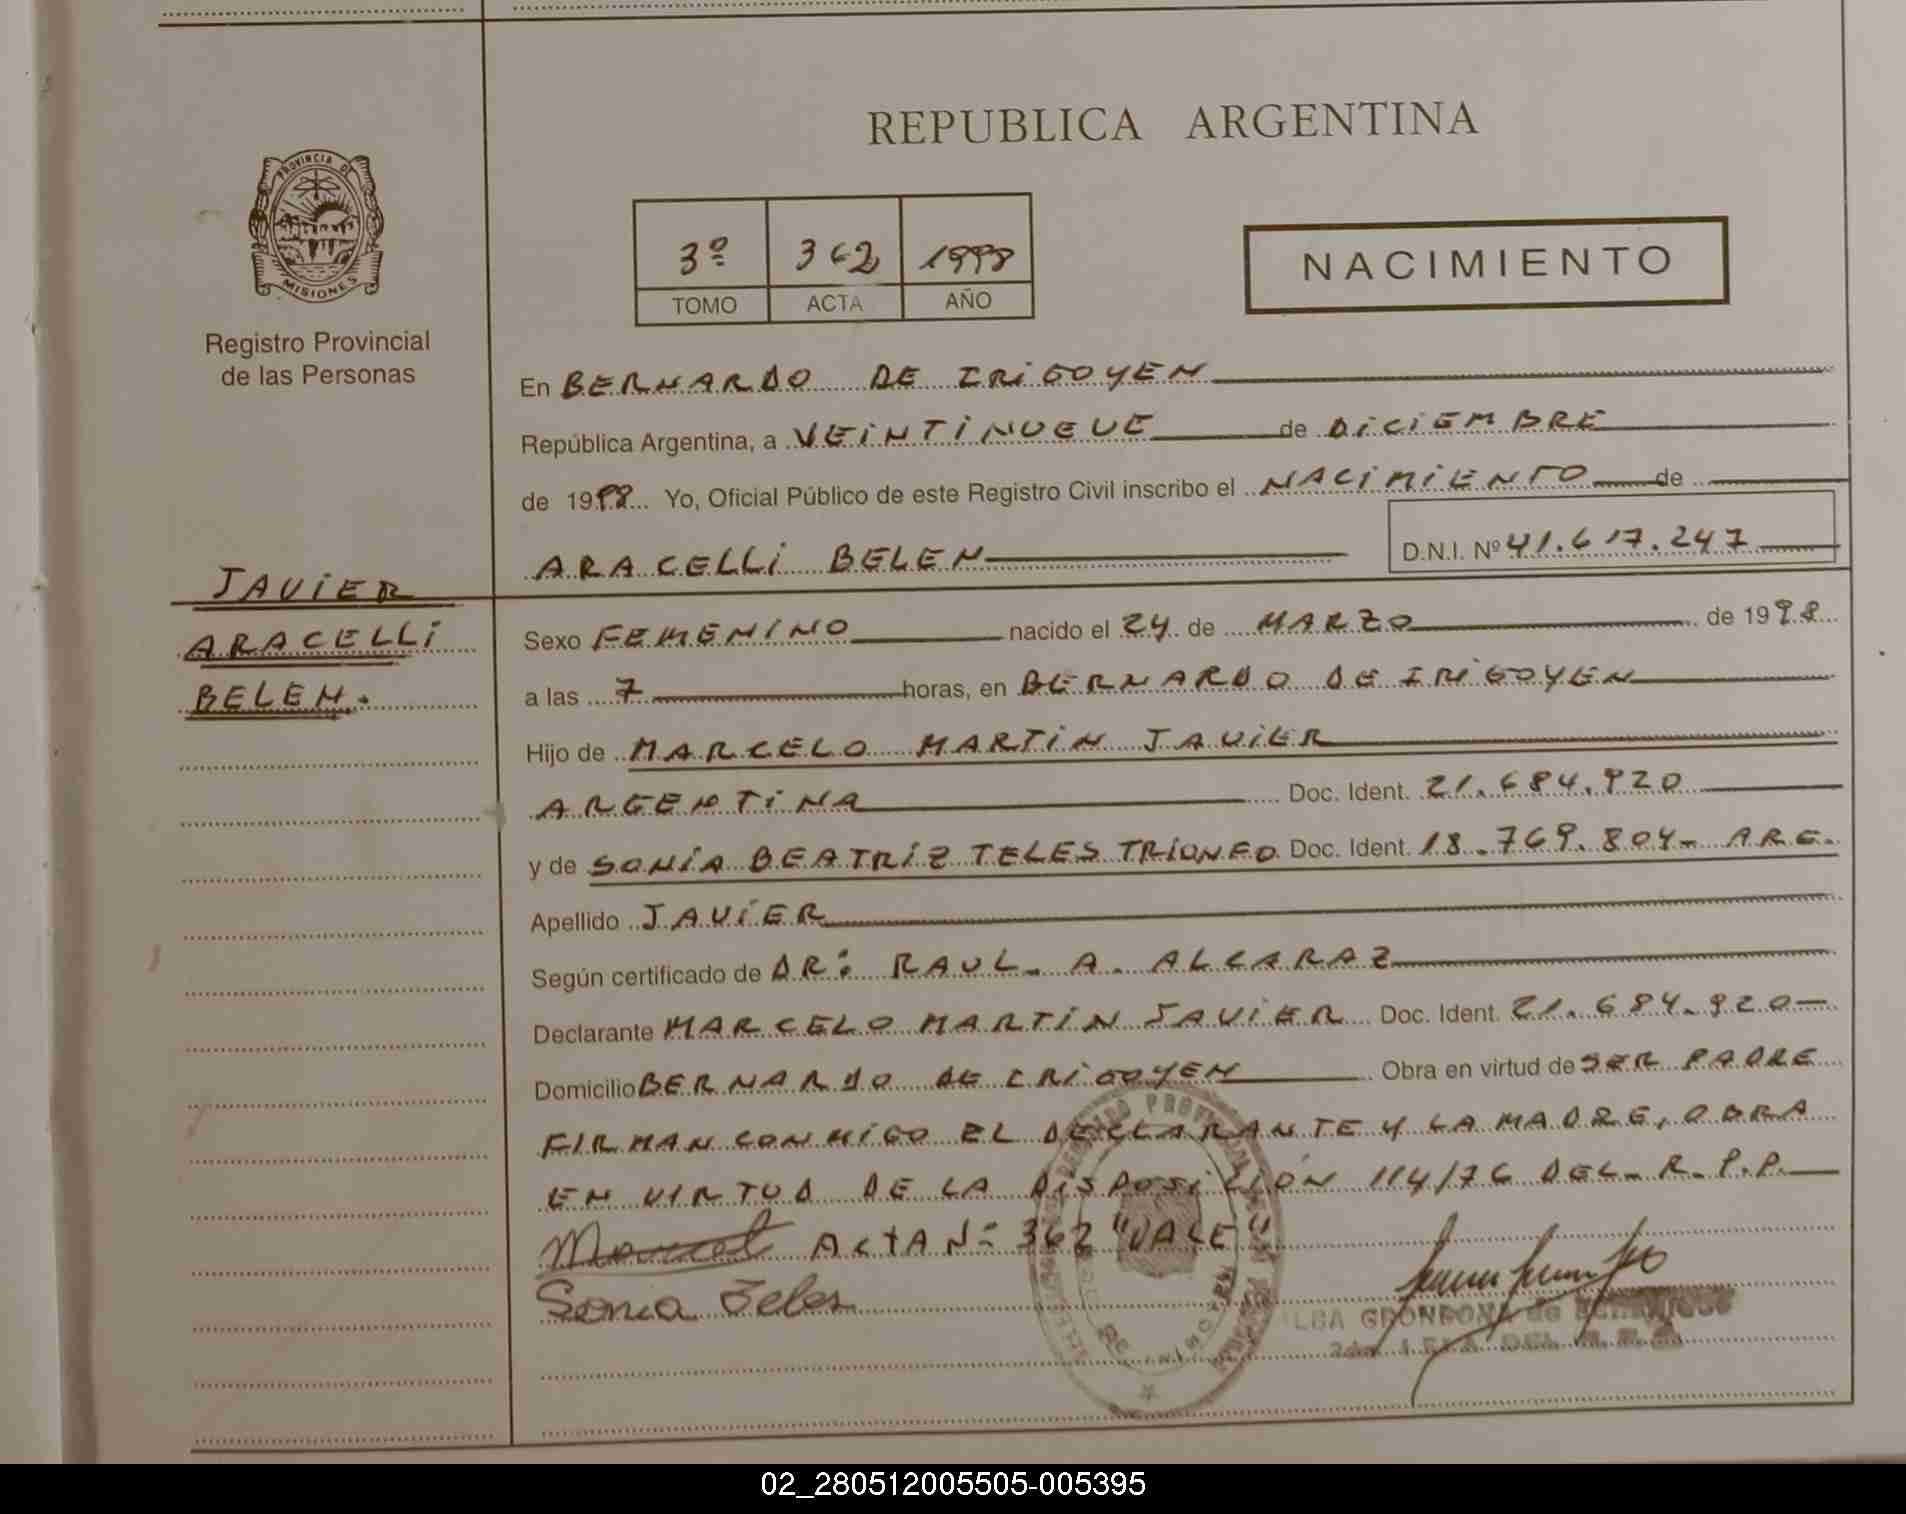 REPUBLICA ARGENTINA
PROVINCIA DE
MISIONES
Registro Provincial
de las Personas
3º 362 1998
TOMO ACTA AÑO
NACIMIENTO
JAVIER
ARACELLI
BELEN.
En BERNARDO DE IRIGOYEN
República Argentina, a VEINTINUEVE de DICIEMBRE
de 1998 Yo, Oficial Público de este Registro Civil inscribo el NACIMIENTO de
ARACELLI BELEN D.N.I. Nº 41.617.247
Sexo FEMENINO nacido el 24 de MARZO de 1998
a las 7 horas, en BERNARDO DE IRIGOYEN
Hijo de MARCELO MARTIN JAVIER
ARGENTINA Doc. Ident. 21.684.920
y de SONIA BEATRIZ TELES TRIONFO Doc. Ident. 18.769.804- ARG.
Apellido JAVIER
Según certificado de DR: RAUL. A. ALCARAZ
Declarante MARCELO MARTIN JAVIER Doc. Ident. 21.684.920-
Domicilio BERNARDO DE IRIGOYEN Obra en virtud de SER PADRE
FIRMAN CONMIGO EL DECLARANTE Y LA MADRE, OBRA
EN VIRTUD DE LA DISPOSICIÓN 114/76 DEL. R. P.P.
ACTA Nº 362 "VALE"
Sonia Teles
GRONDONA de
02_280512005505-005395